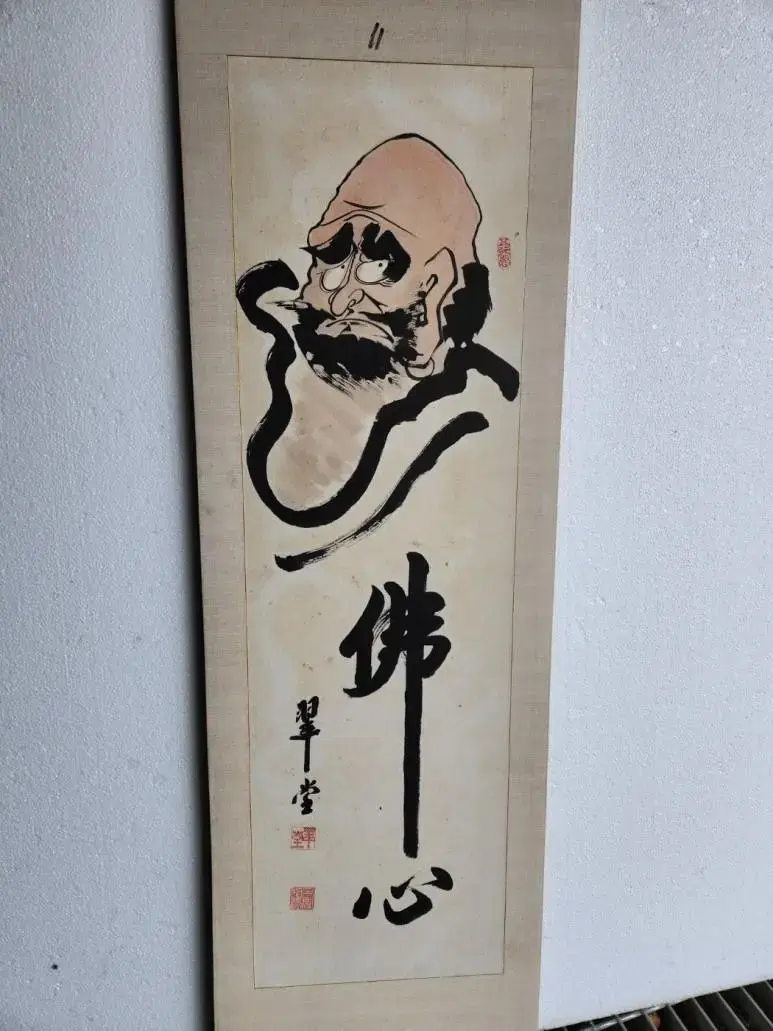 11
佛心
翠堂